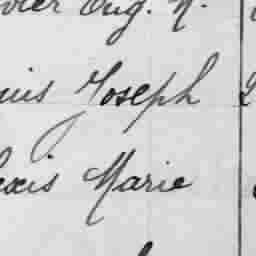 vier Eug. N.
uis Joseph
exis Marie